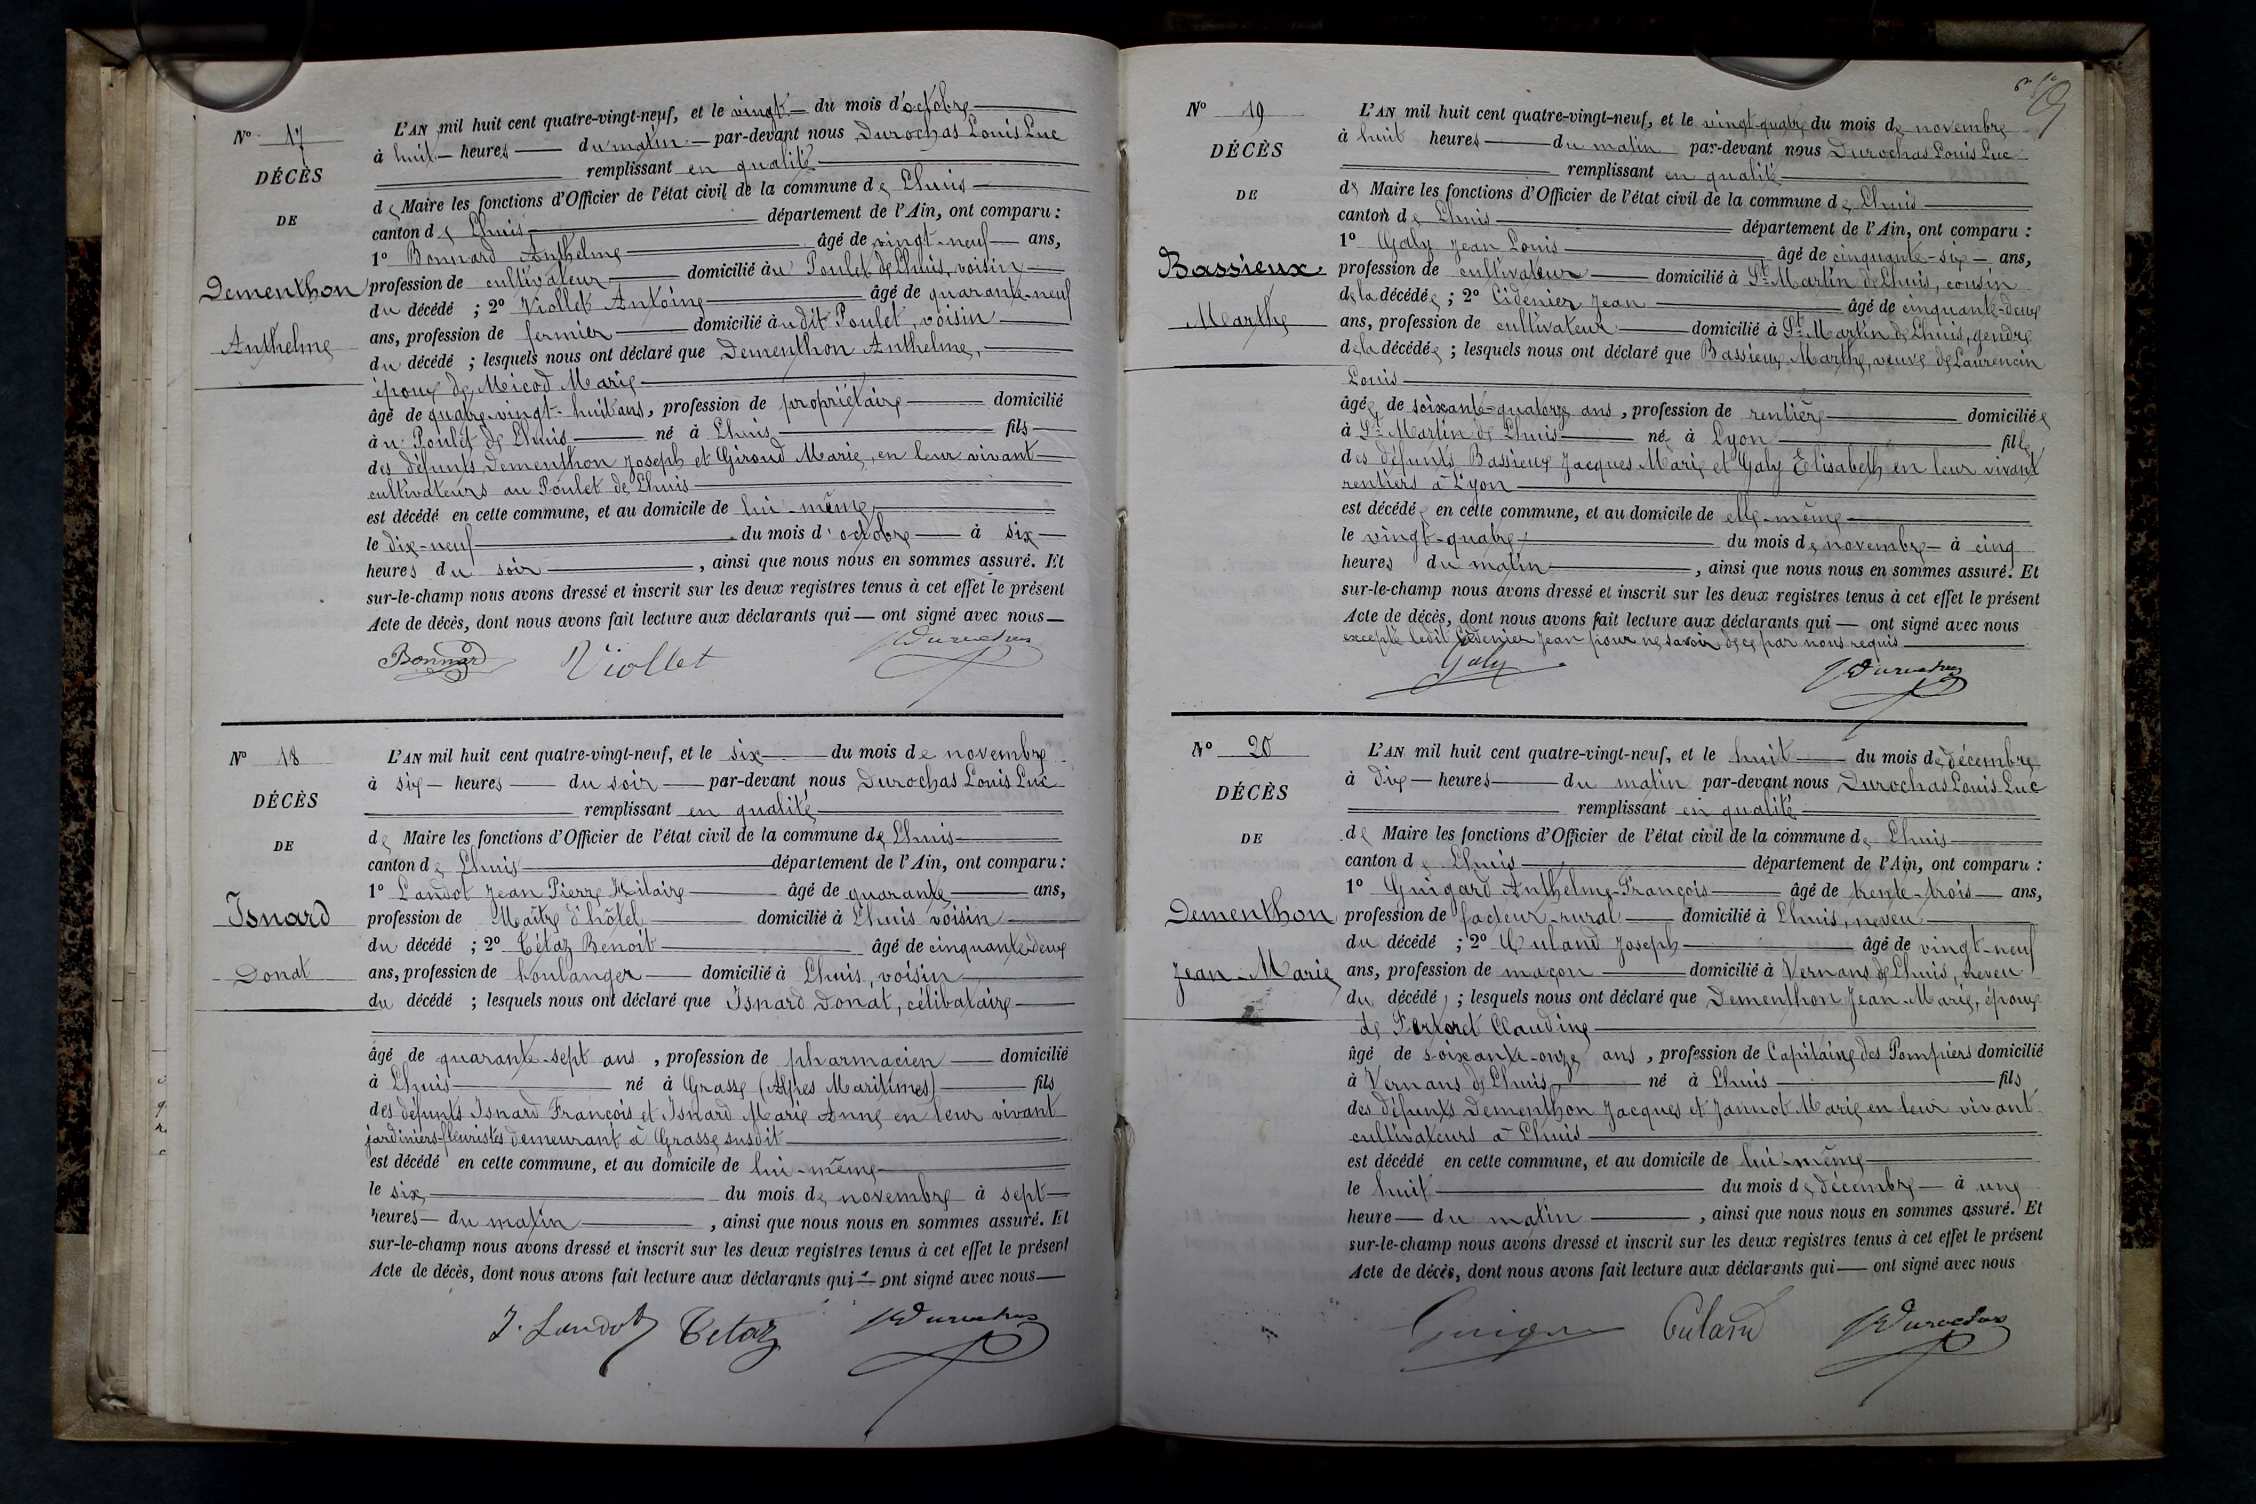 N° 17
DÉCÈS
DE
Dementhon
Anthelme
L'AN mil huit cent quatre-vingt-neuf, et le vingt du mois d'octobre
à huit heures du matin par-devant nous Durochas Louis Luc
remplissant en qualité
de Maire les fonctions d'Officier de l'état civil de la commune de Lhuis
canton de Lhuis département de l'Ain, ont comparu :
1° Bonnard Anthelme âgé de vingt-neuf ans,
profession de cultivateur domicilié au Poulet de Lhuis, voisin
du décédé ; 2° Viollet Antoine âgé de quarante-neuf
ans, profession de fermier domicilié audit Poulet, voisin
du décédé ; lesquels nous ont déclaré que Dementhon Anthelme,
époux de Micod Marie
âgé de quatre-vingt-huit ans, profession de propriétaire domicilié
au Poulet de Lhuis né à Lhuis fils
des défunts Dementhon Joseph et Giroud Marie, en leur vivant
cultivateurs au Poulet de Lhuis
est décédé en cette commune, et au domicile de lui-même,
le dix-neuf du mois d'octobre à six
heures du soir , ainsi que nous nous en sommes assuré. Et
sur-le-champ nous avons dressé et inscrit sur les deux registres tenus à cet effet le présent
Acte de décès, dont nous avons fait lecture aux déclarants qui ont signé avec nous
Bonnard Viollet Durochas
N° 18
DÉCÈS
DE
Isnard
Donat
L'AN mil huit cent quatre-vingt-neuf, et le six du mois de novembre
à six heures du soir par-devant nous Durochas Louis Luc
remplissant en qualité
de Maire les fonctions d'Officier de l'état civil de la commune de Lhuis
canton de Lhuis département de l'Ain, ont comparu :
1° Landot Jean Pierre Hilaire âgé de quarante ans,
profession de Maître d'hôtel domicilié à Lhuis voisin
du décédé ; 2° Tétaz Benoit âgé de cinquante-deux
ans, profession de boulanger domicilié à Lhuis, voisin
du décédé ; lesquels nous ont déclaré que Isnard Donat, célibataire
âgé de quarante-sept ans , profession de pharmacien domicilié
à Lhuis né à Grasse (Alpes Maritimes) fils
des défunts Isnard François et Isnard Marie Anne en leur vivant
jardiniers-fleuristes demeurant à Grasse susdit
est décédé en cette commune, et au domicile de lui-même
le six du mois de novembre à sept
heures du matin , ainsi que nous nous en sommes assuré. Et
sur-le-champ nous avons dressé et inscrit sur les deux registres tenus à cet effet le présent
Acte de décès, dont nous avons fait lecture aux déclarants qui ont signé avec nous
J. Landot Tetaz Durochas
N° 19
DÉCÈS
DE
Bassieux
Marthe
L'AN mil huit cent quatre-vingt-neuf, et le vingt-quatre du mois de novembre
à huit heures du matin par-devant nous Durochas Louis Luc
remplissant en qualité
de Maire les fonctions d'Officier de l'état civil de la commune de Lhuis
canton de Lhuis département de l'Ain, ont comparu :
1° Galy Jean Louis âgé de cinquante-six ans,
profession de cultivateur domicilié à St Martin de Lhuis, cousin
de la décédée ; 2° Cidenier Jean âgé de cinquante-deux
ans, profession de cultivateur domicilié à St Martin de Lhuis, gendre
de la décédée ; lesquels nous ont déclaré que Bassieux Marthe, veuve de Laurencin
Louis
âgée de soixante-quatorze ans , profession de rentière domiciliée
à St Martin de Lhuis née à Lyon fille
des défunts Bassieux Jacques Marie et Galy Elisabeth en leur vivant
rentiers à Lyon
est décédée en cette commune, et au domicile de elle-même
le vingt-quatre du mois de novembre à cinq
heures du matin , ainsi que nous nous en sommes assuré. Et
sur-le-champ nous avons dressé et inscrit sur les deux registres tenus à cet effet le présent
Acte de décès, dont nous avons fait lecture aux déclarants qui ont signé avec nous
excepté ledit Cidenier Jean pour ne savoir de ce par nous requis
Galy Durochas
N° 20
DÉCÈS
DE
Dementhon
Jean-Marie
L'AN mil huit cent quatre-vingt-neuf, et le huit du mois de décembre
à dix heures du matin par-devant nous Durochas Louis Luc
remplissant en qualité
de Maire les fonctions d'Officier de l'état civil de la commune de Lhuis
canton de Lhuis département de l'Ain, ont comparu :
1° Guigard Anthelme-François âgé de trente-trois ans,
profession de facteur-rural domicilié à Lhuis, neveu
du décédé ; 2° Culand Joseph âgé de vingt-neuf
ans, profession de maçon domicilié à Vernans de Lhuis, neveu
du décédé ; lesquels nous ont déclaré que Dementhon Jean-Marie, époux
de Fertoret Claudine
âgé de soixante-onze ans , profession de Capitaine des Pompiers domicilié
à Vernans de Lhuis né à Lhuis fils
des défunts Dementhon Jacques et Jannot Marie en leur vivant
cultivateurs à Lhuis
est décédé en cette commune, et au domicile de lui-même
le huit du mois de décembre à une
heure du matin , ainsi que nous nous en sommes assuré. Et
sur-le-champ nous avons dressé et inscrit sur les deux registres tenus à cet effet le présent
Acte de décès, dont nous avons fait lecture aux déclarants qui ont signé avec nous
Culand Durochas